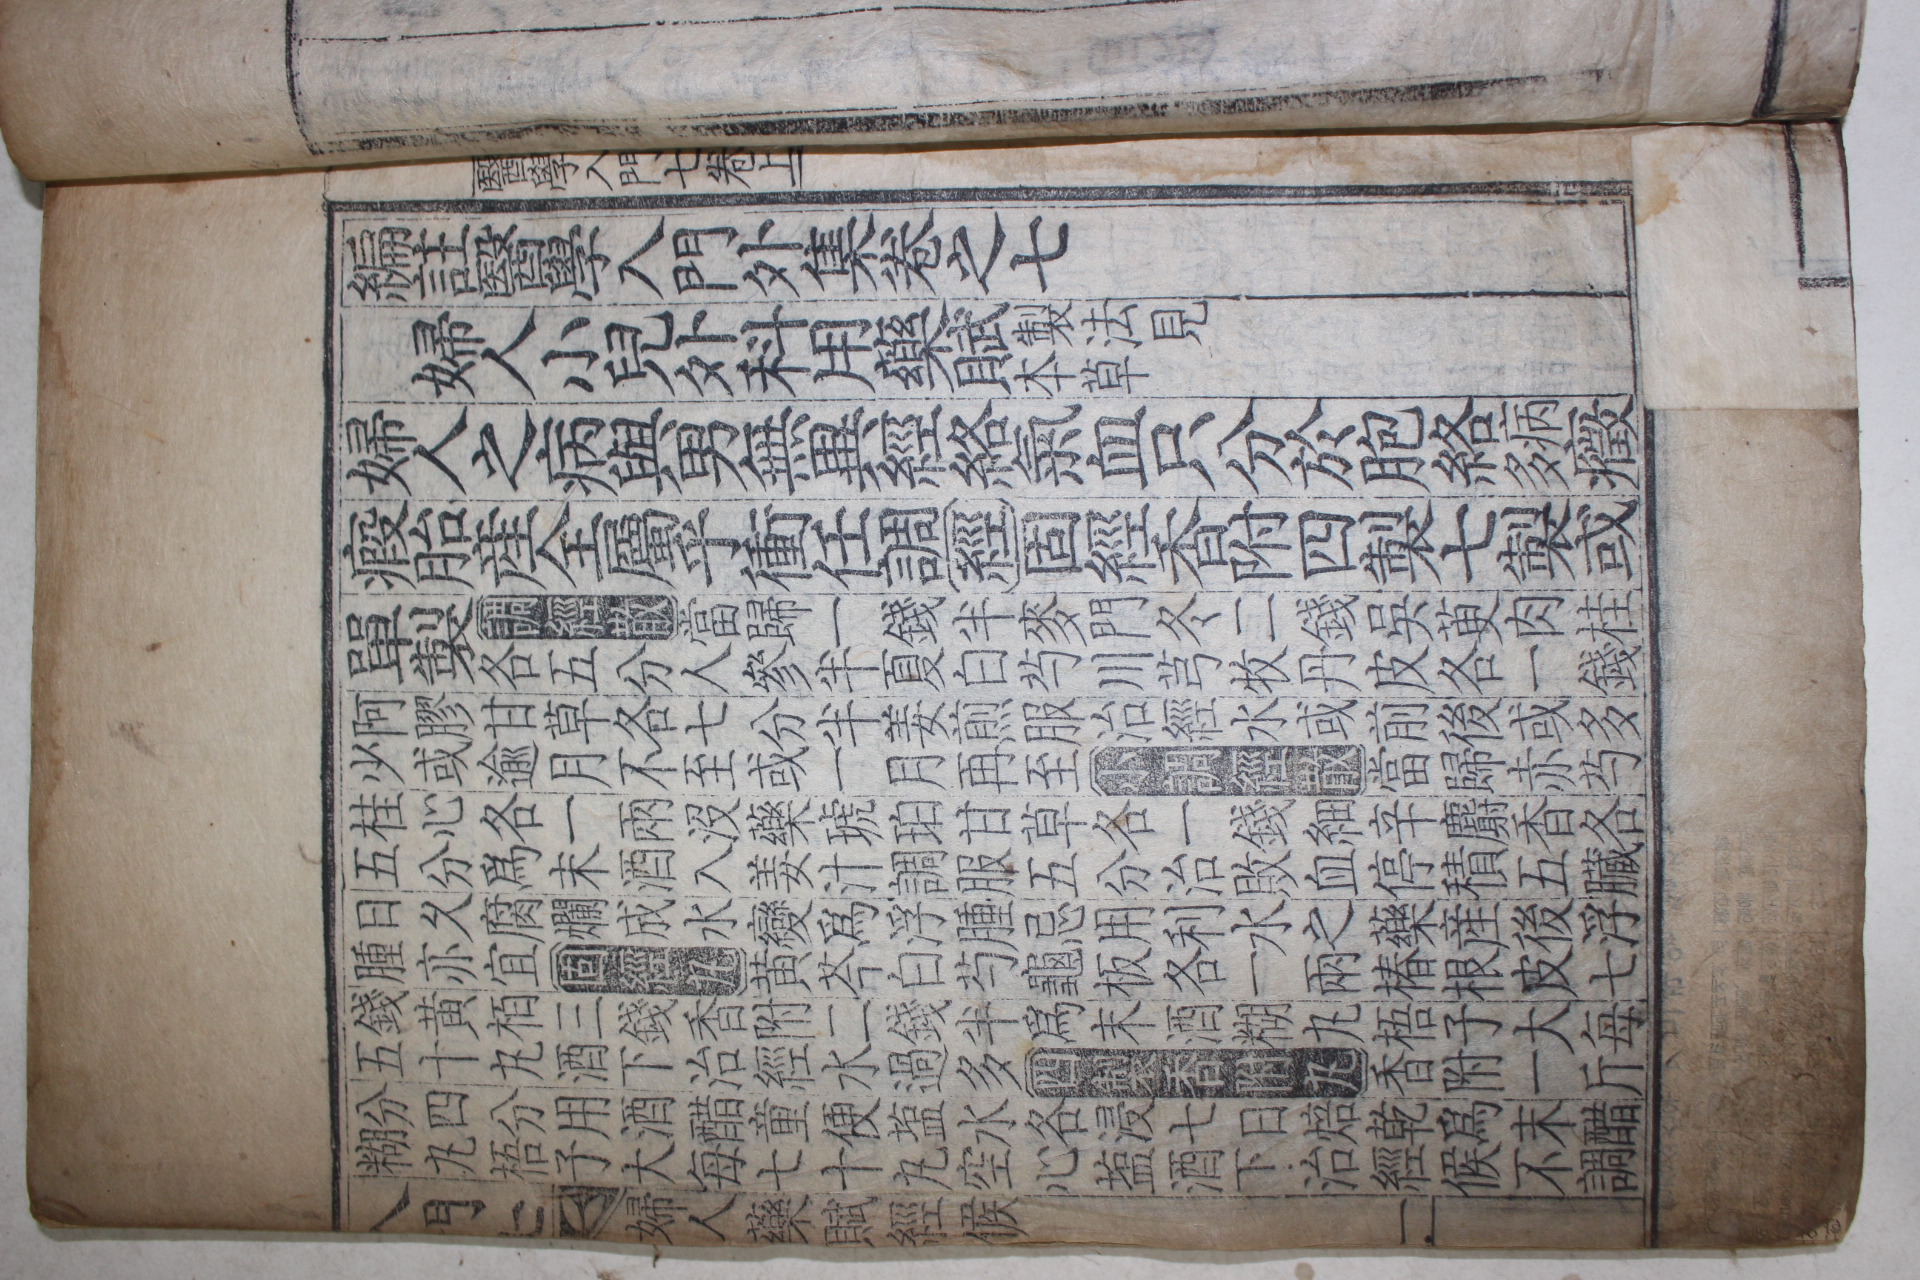 醫學入門七卷上
編註醫學入門外集卷之七
婦人小兒外科用藥賦 製法見
本草
婦人之病與男無異經絡氣血只分於胞絡 病
多
癥
瘕胎産全屬乎衝任調經固經香附四製七製或
單製 調經散 當歸一錢半麥門冬二錢吳茰肉桂
各五分人參半夏白芍川芎牧丹皮各一錢
阿膠甘草各七分半姜煎服治經水或前後或多
少或逾月不至或一月再至 小調經散 當歸赤芍
桂心各一兩沒藥琥珀甘草各一錢細辛麝香各
五分爲末酒入姜汁調服五分治敗血停積五臟
日久腐爛成水變爲浮腫忌用利水之藥産後浮
腫亦宜 固經丸 黃芩白芍龜板各一兩椿根皮七
錢黃栢三錢香附二錢半爲末酒糊丸梧子大每
五十丸酒下治經水過多 四製香附丸 香附一斤
分四分用酒醋童便盐水各浸七日焙乾爲末醋
糊丸梧子大每七十丸空心盐酒下治經候不調
入門七 婦人藥賦經候 一